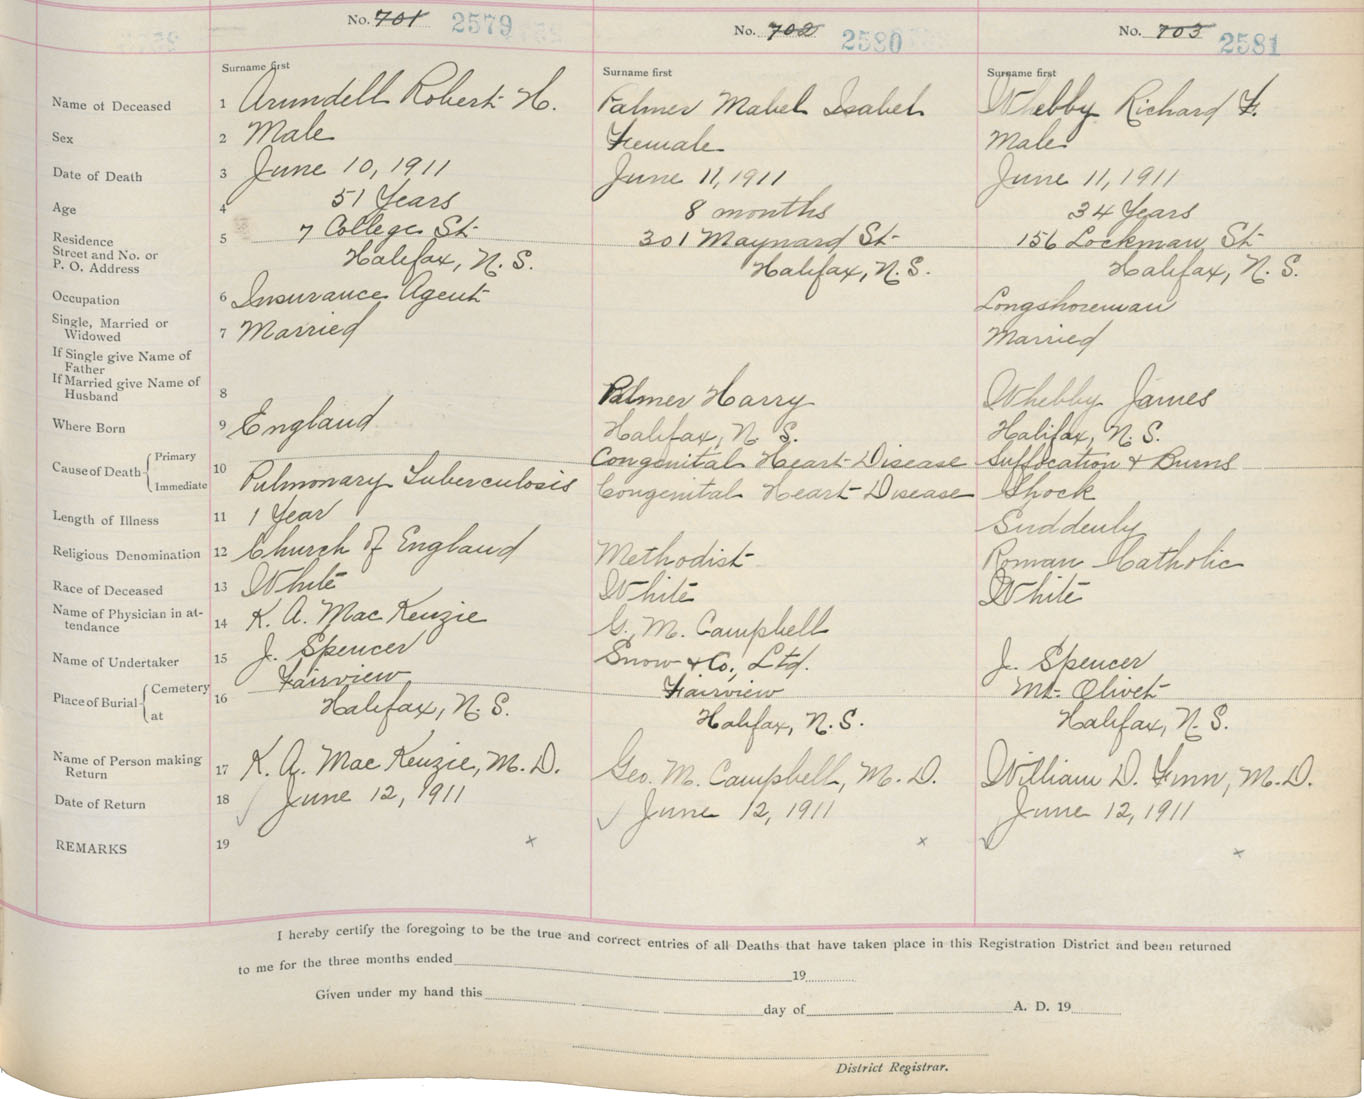 No. 701 2579 No. 702 2580 No. 703 2581
Surname first Surname first Surname first
Name of Deceased 1 Arundell Robert H. Palmer Mabel Isabel Whebby Richard F.
Sex 2 Male Female Male
Date of Death 3 June 10, 1911 June 11, 1911 June 11, 1911
Age 4 51 Years 8 months 34 Years
Residence 5 7 College St 301 Maynard St 156 Lockman St
Street and No. or
P. O. Address Halifax, N. S. Halifax, N. S. Halifax, N. S.
Occupation 6 Insurance Agent Longshoreman
Single, Married or
Widowed 7 Married Married
If Single give Name of
Father
If Married give Name of
Husband 8 Palmer Harry Whebby James
Where Born 9 England Halifax, N. S. Halifax, N. S.
Cause of Death Primary 10 Congenital Heart Disease Suffocation & Burns
Immediate Pulmonary Tuberculosis Congenital Heart Disease Shock
Length of Illness 11 1 Year Suddenly
Religious Denomination 12 Church of England Methodist Roman Catholic
Race of Deceased 13 White White White
Name of Physician in at-
tendance 14 K. A. MacKenzie G. M. Campbell
Name of Undertaker 15 J. Spencer Snow & Co, Ltd. J. Spencer
Place of Burial Cemetery 16 Fairview Fairview Mt. Olivet
at Halifax, N. S. Halifax, N. S. Halifax, N. S.
Name of Person making
Return 17 K. A. MacKenzie, M. D. Geo. M. Campbell, M. D. William D. Finn, M. D.
Date of Return 18 June 12, 1911 June 12, 1911 June 12, 1911
REMARKS 19 x x x
I hereby certify the foregoing to be the true and correct entries of all Deaths that have taken place in this Registration District and been returned
to me for the three months ended 19
Given under my hand this day of A. D. 19
District Registrar.